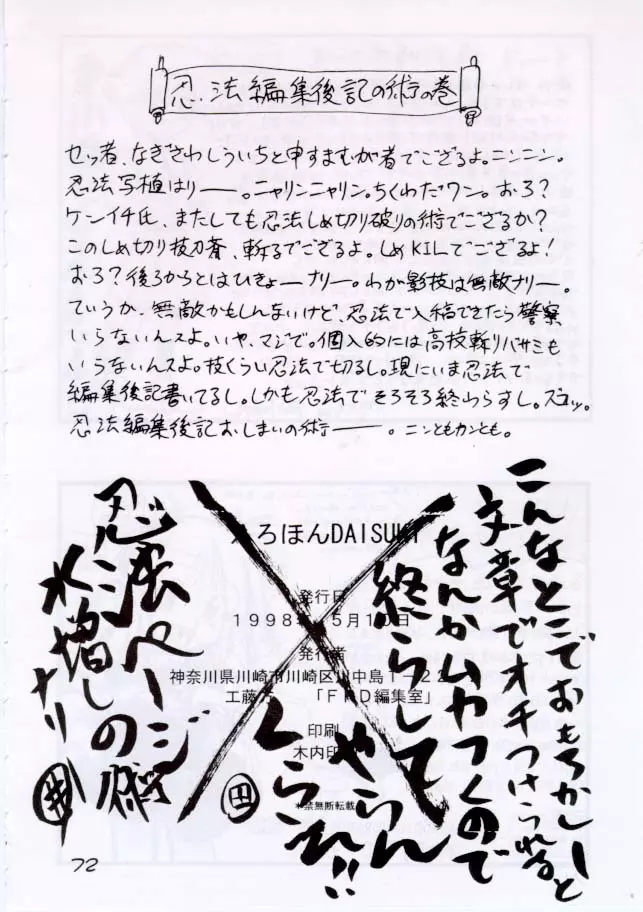 忍法編集後記の術の巻
せっ者、なぎさわしういちと申すまむが者でござるよ。ニンニン。
忍法写植はりー―。ニャリンニャリン。ちくわだワン。おろ?
ケンイチ氏、またしても忍法しめ切り破りの術でござるか?
このしめ切り抜刀斎、斬るでござるよ。しめKILでござるよ!
おろ?後ろからとはひきょーナリー。わが影技は無敵ナリー。
ていうか、無敵かもしんまいけど、忍法で入稿できたら警察
いらないんスよ。いや、マジで。個人的には高枝斬りバサミも
いうないんスよ。枝くらい忍法で切るし。現にいま忍法で
編集後記書いてるし。しかも忍法でそろそろ終わらすし。ズコッ。
忍法編集後記おしまいの術―――。ニンともカンとも。
こんなとこでおもろかしーと
文章でオチつけられると
なんかムカつくので
終らして
やらん
くらえ!!
田
えろほんDAISUKI
発行日
1998年5月10日
発行者
神奈川県川崎市川崎区川中島1-22
工藤 「FKD編集室」
印刷
木内印
*禁無断転載
忍法ページ
水増しの術
ナリ
井
72